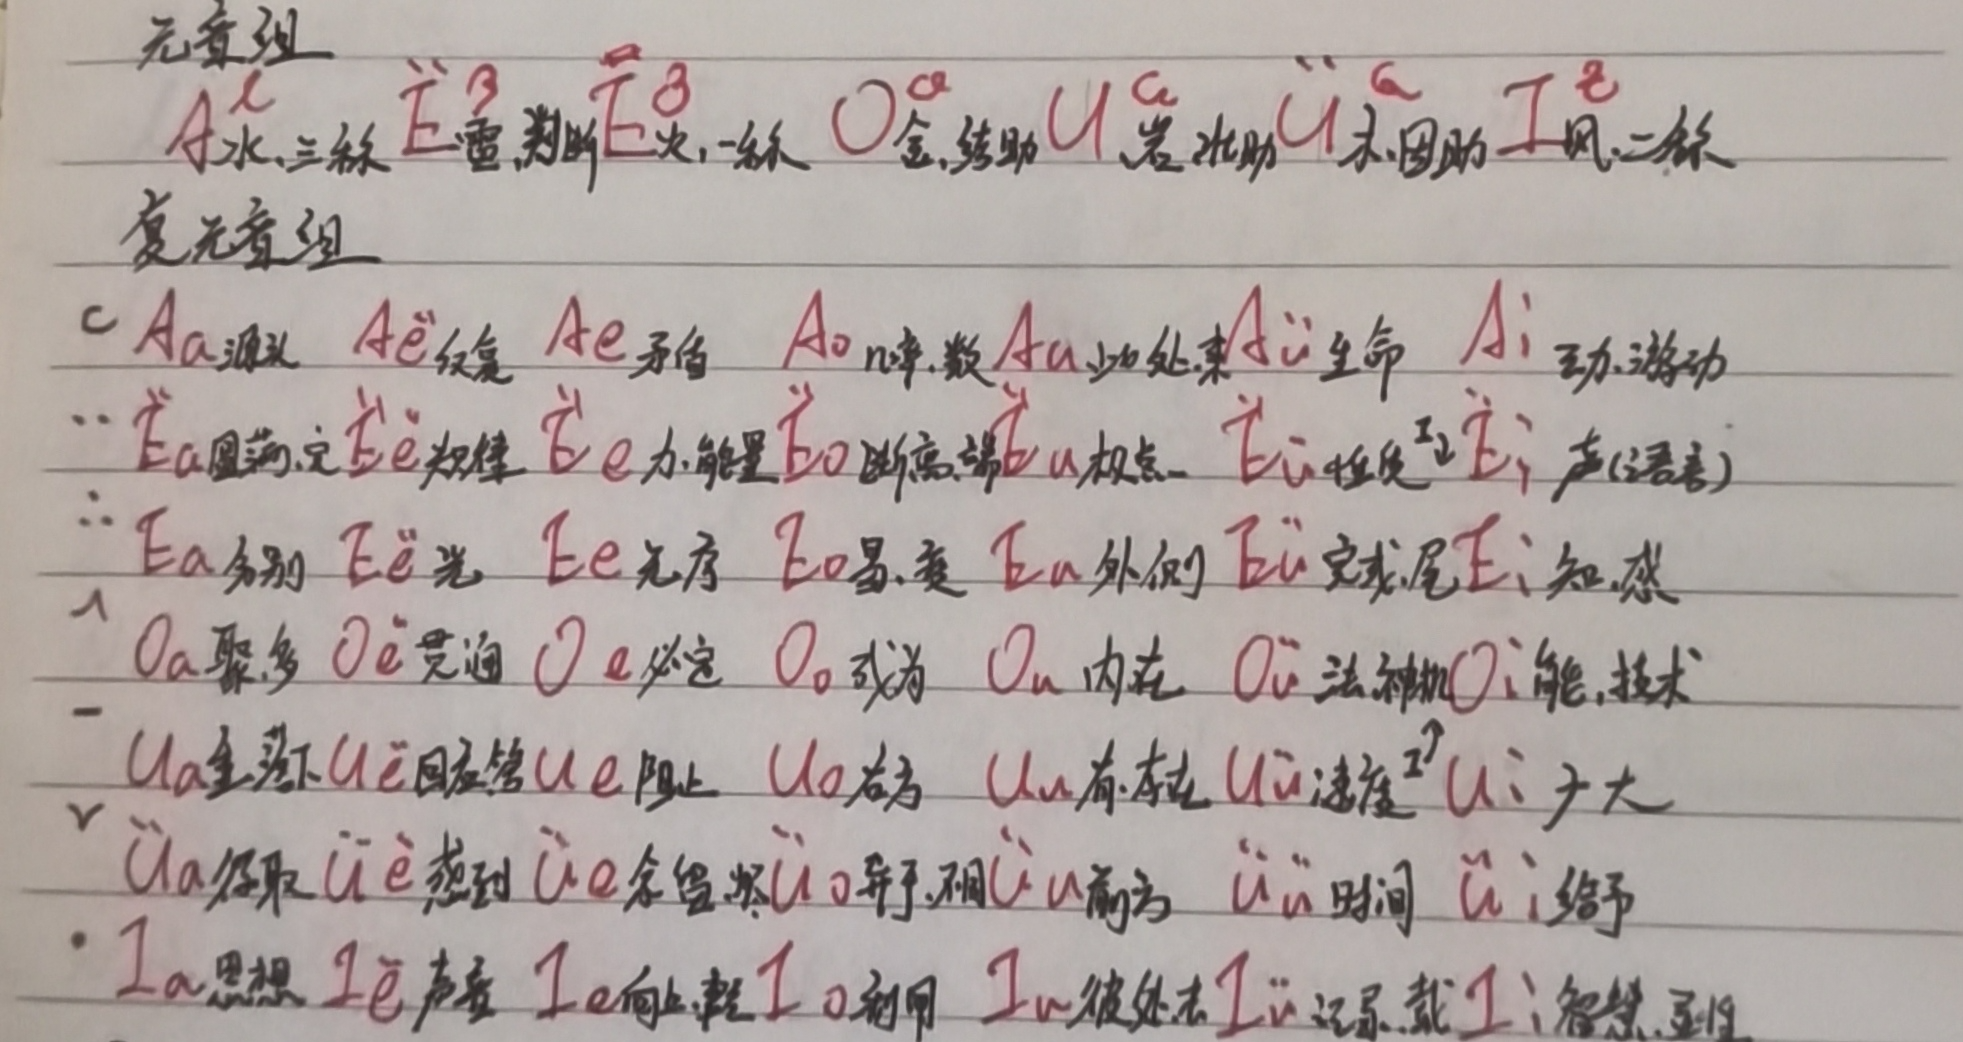 元音组
A水.三称 Ë雷,判断 E火,一称 O金,结助 U岩,状助 Ü木.因助 I风.二称
复元音组
c Aa源头 Aë反复 Ae矛盾 Ao n率.数 Au此处.来 Aü生命 Ai 互动.游动
·· Ëa圆满.完 Ëë规律 Ëe力.能量 Ëo断高.端 Ëu极点 Ëü性质 Ëi 声(语言)
∴ Ea分别 Eë光 Ee无序 Eo易.变 Eu外侧 Eü完成.尾 Ei知.感
∧ Oa聚.多 Oë贯通 Oe必定 Oo成为 Ou内在 Oü法.神.机 Oi能.技术
- Ua坠.落下 Uë回应.答 Ue阻止 Uo右方 Uu有.存在 Uü速度 Ui于大
∨ Üa得取 Üë感到 Üe余留 Üo异于.相 Üu前方 Üü时间 Üi给予
· Ia思想 Ië声音 Ie向上 Io利用 Iu彼处.去 Iü记录.载 Ii智慧.灵性